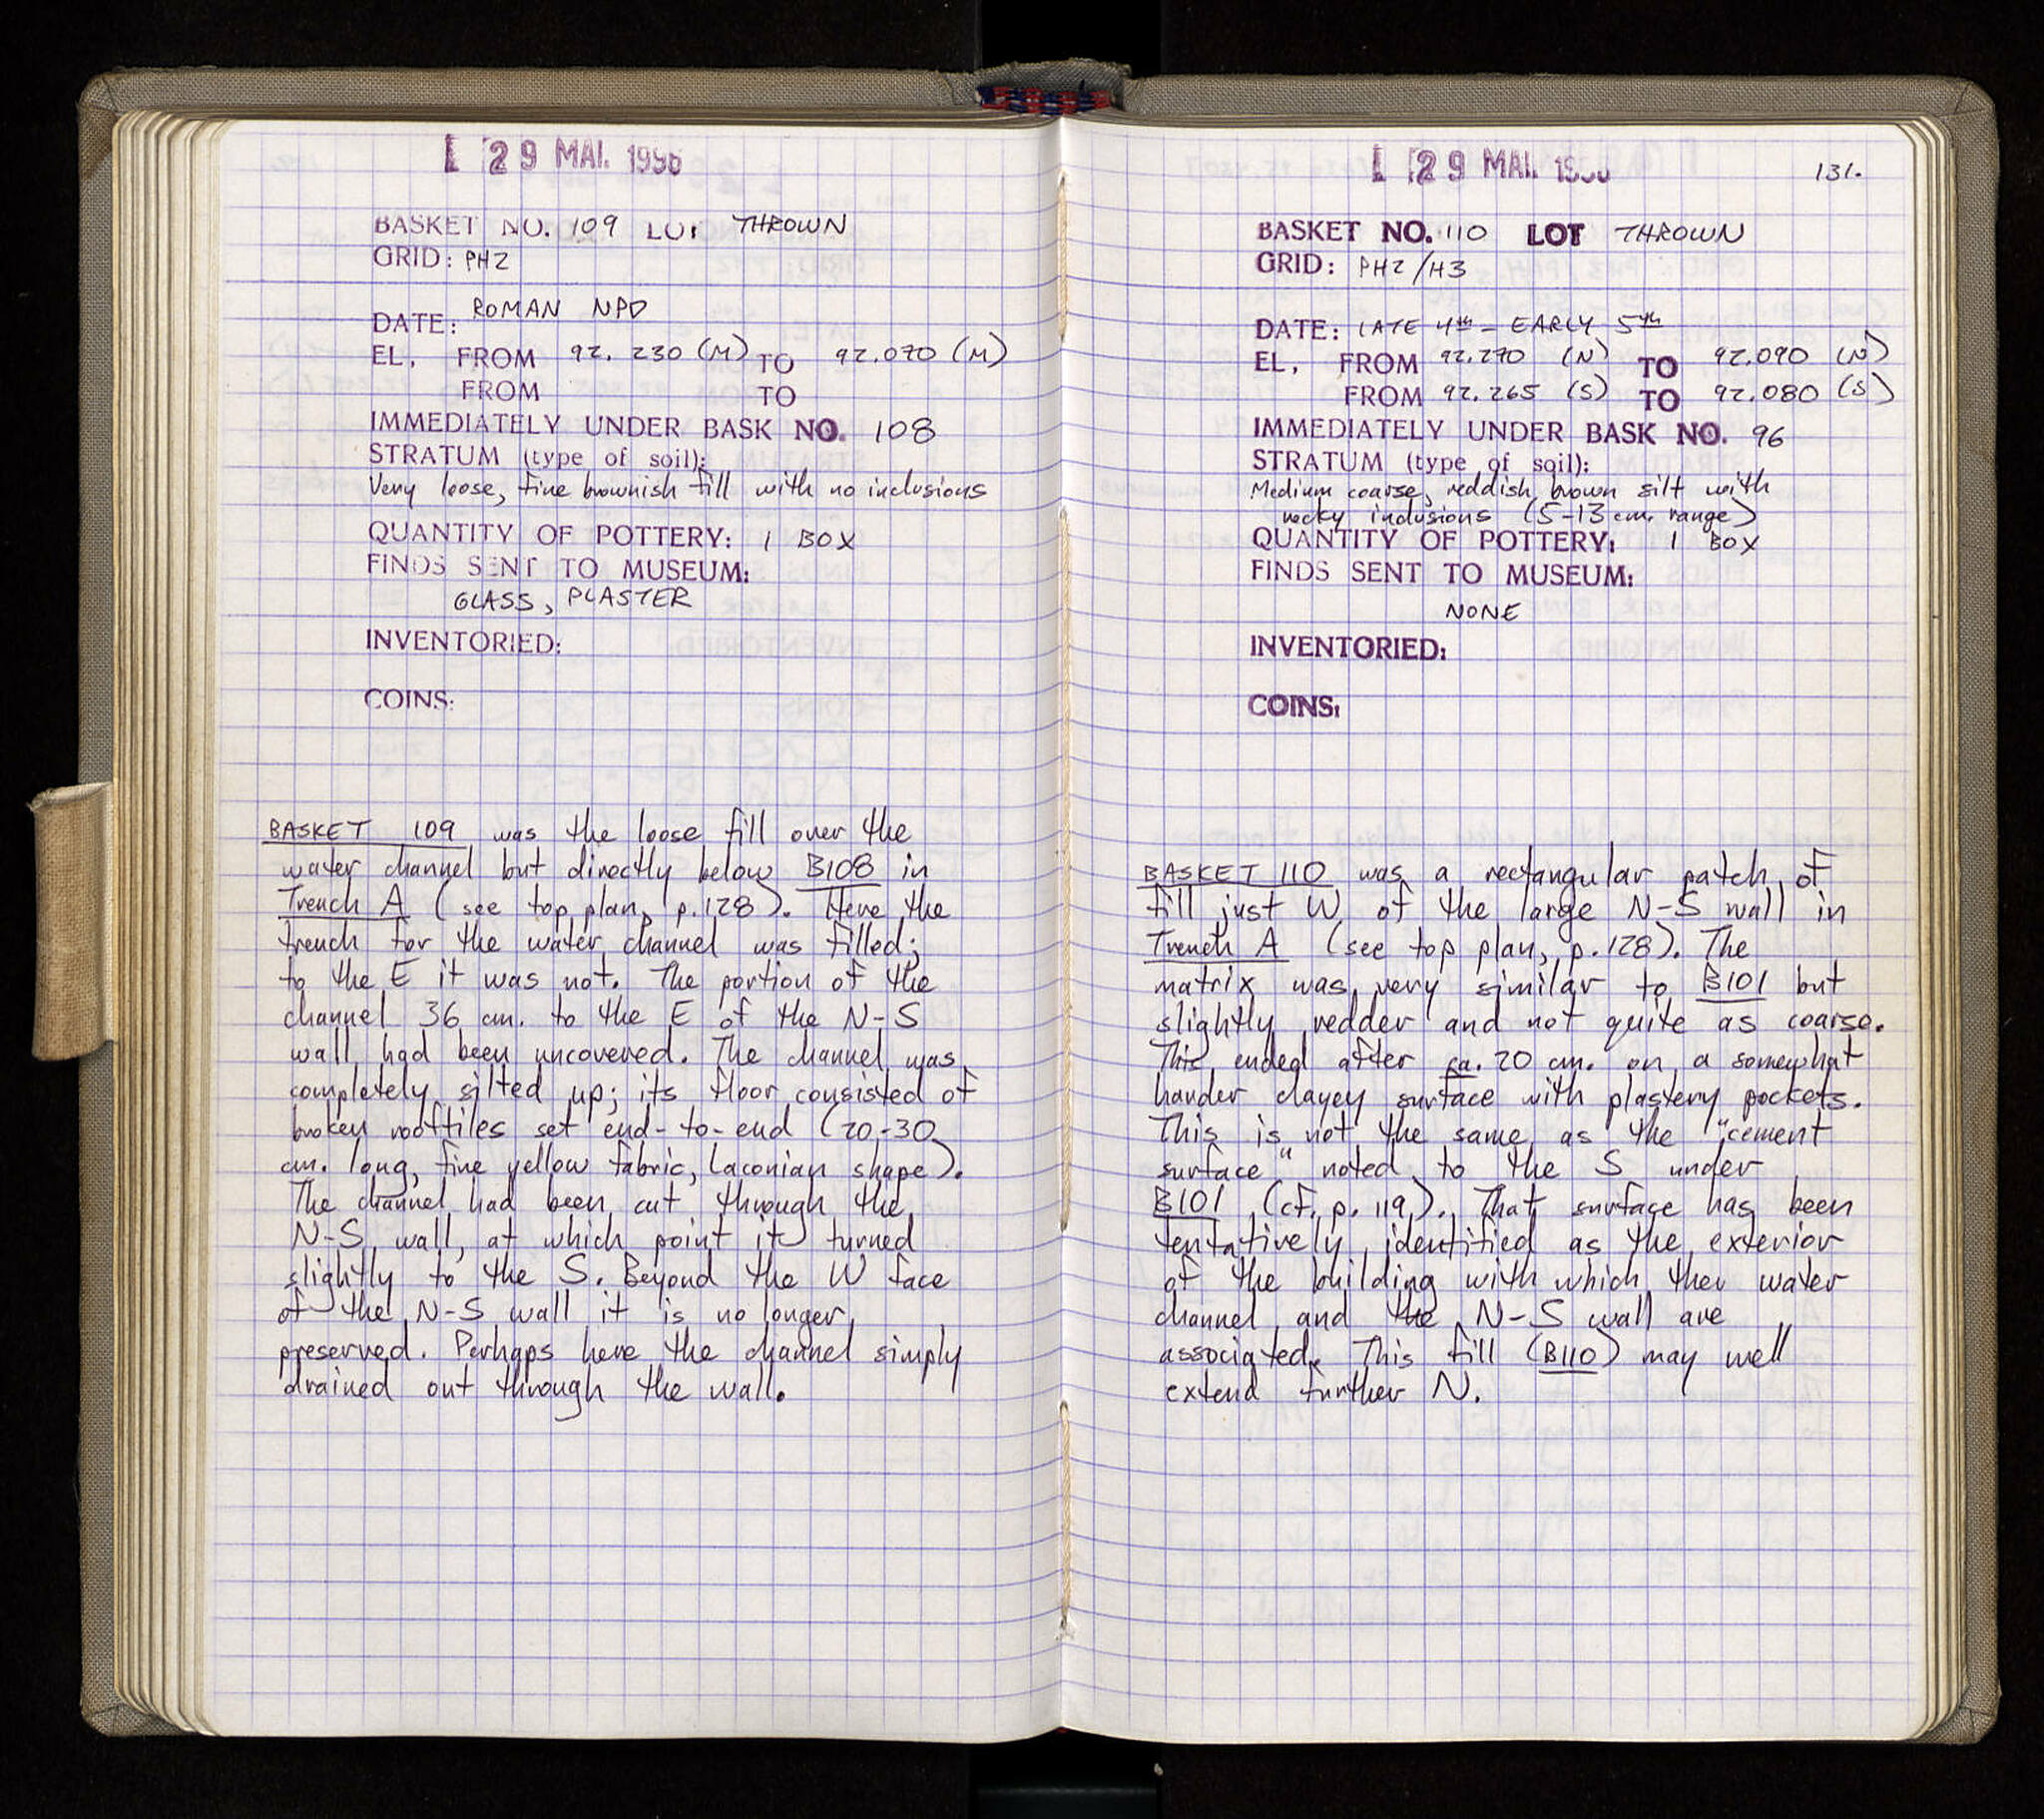 29 MAI. 1990
BASKET NO. 109 LOT THROWN
GRID: PHZ
DATE: ROMAN NPD
EL, FROM 92.230 (M) TO 92.070 (M)
FROM TO
IMMEDIATELY UNDER BASK NO. 108
STRATUM (type of soil):
Very loose, fine brownish fill with no inclusions
QUANTITY OF POTTERY: 1 BOX
FINDS SENT TO MUSEUM:
GLASS, PLASTER
INVENTORIED:
COINS:
BASKET 109 was the loose fill over the
water channel but directly below B108 in
Trench A (see top plan, p.128). Here the
trench for the water channel was filled;
to the E it was not. The portion of the
channel 36 cm. to the E of the N-S
wall had been uncovered. The channel was
completely silted up; its floor consisted of
broken rooftiles set end-to-end (20-30
cm. long, fine yellow fabric, Laconian shape).
The channel had been cut through the
N-S wall, at which point it turned
slightly to the S. Beyond the W face
of the N-S wall it is no longer
preserved. Perhaps here the channel simply
drained out through the wall.
29 MAI.
131.
BASKET NO. 110 LOT THROWN
GRID: PHZ/H3
DATE: LATE 4th - EARLY 5th
EL, FROM 92.270 (N) TO 92.090 (N)
FROM 92.265 (S) TO 92.080 (S)
IMMEDIATELY UNDER BASK NO. 96
STRATUM (type of soil):
Medium coarse, reddish brown silt with
rocky inclusions (5-13 cm. range)
QUANTITY OF POTTERY: 1 BOX
FINDS SENT TO MUSEUM:
NONE
INVENTORIED:
COINS:
BASKET 110 was a rectangular patch of
fill just W of the large N-S wall in
Trench A (see top plan, p.128). The
matrix was very similar to B101 but
slightly redder and not quite as coarse.
This ended after ca. 20 cm. on a somewhat
harder clayey surface with plastery pockets.
This is not the same as the "cement
surface" noted to the S under
B101 (cf. p. 119). That surface has been
tentatively identified as the exterior
of the building with which ther water
channel and the N-S wall are
associated. This fill (B110) may well
extend further N.